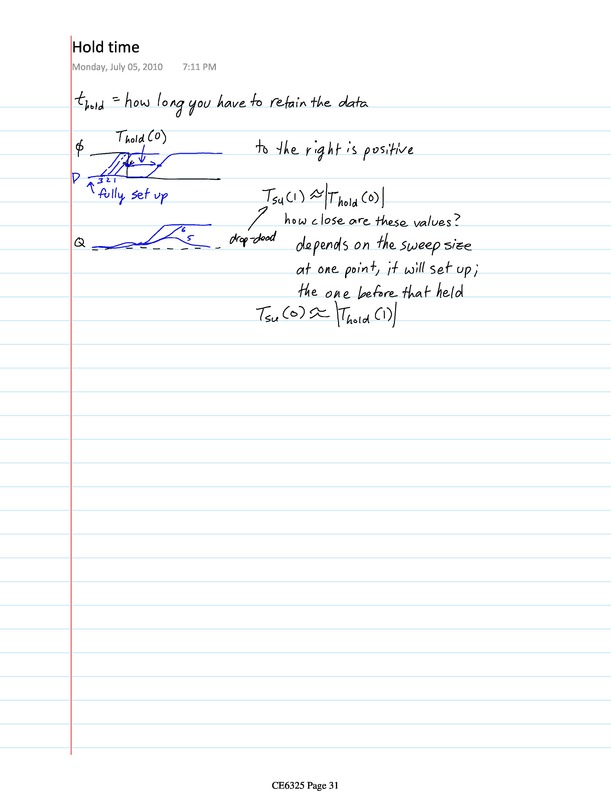 Hold time
Monday, July 05, 2010 7:11 PM
t hold = how long you have to retain the data
Thold(0)
ϕ
to the right is positive
D
3 2 1
fully set up
Tsu(1) ≈ |Thold(0)|
how close are these values?
drop-dead
depends on the sweep size
Q
6
5
at one point, it will set up;
the one before that held
Tsu(0) ≈ |Thold(1)|
CE6325 Page 31